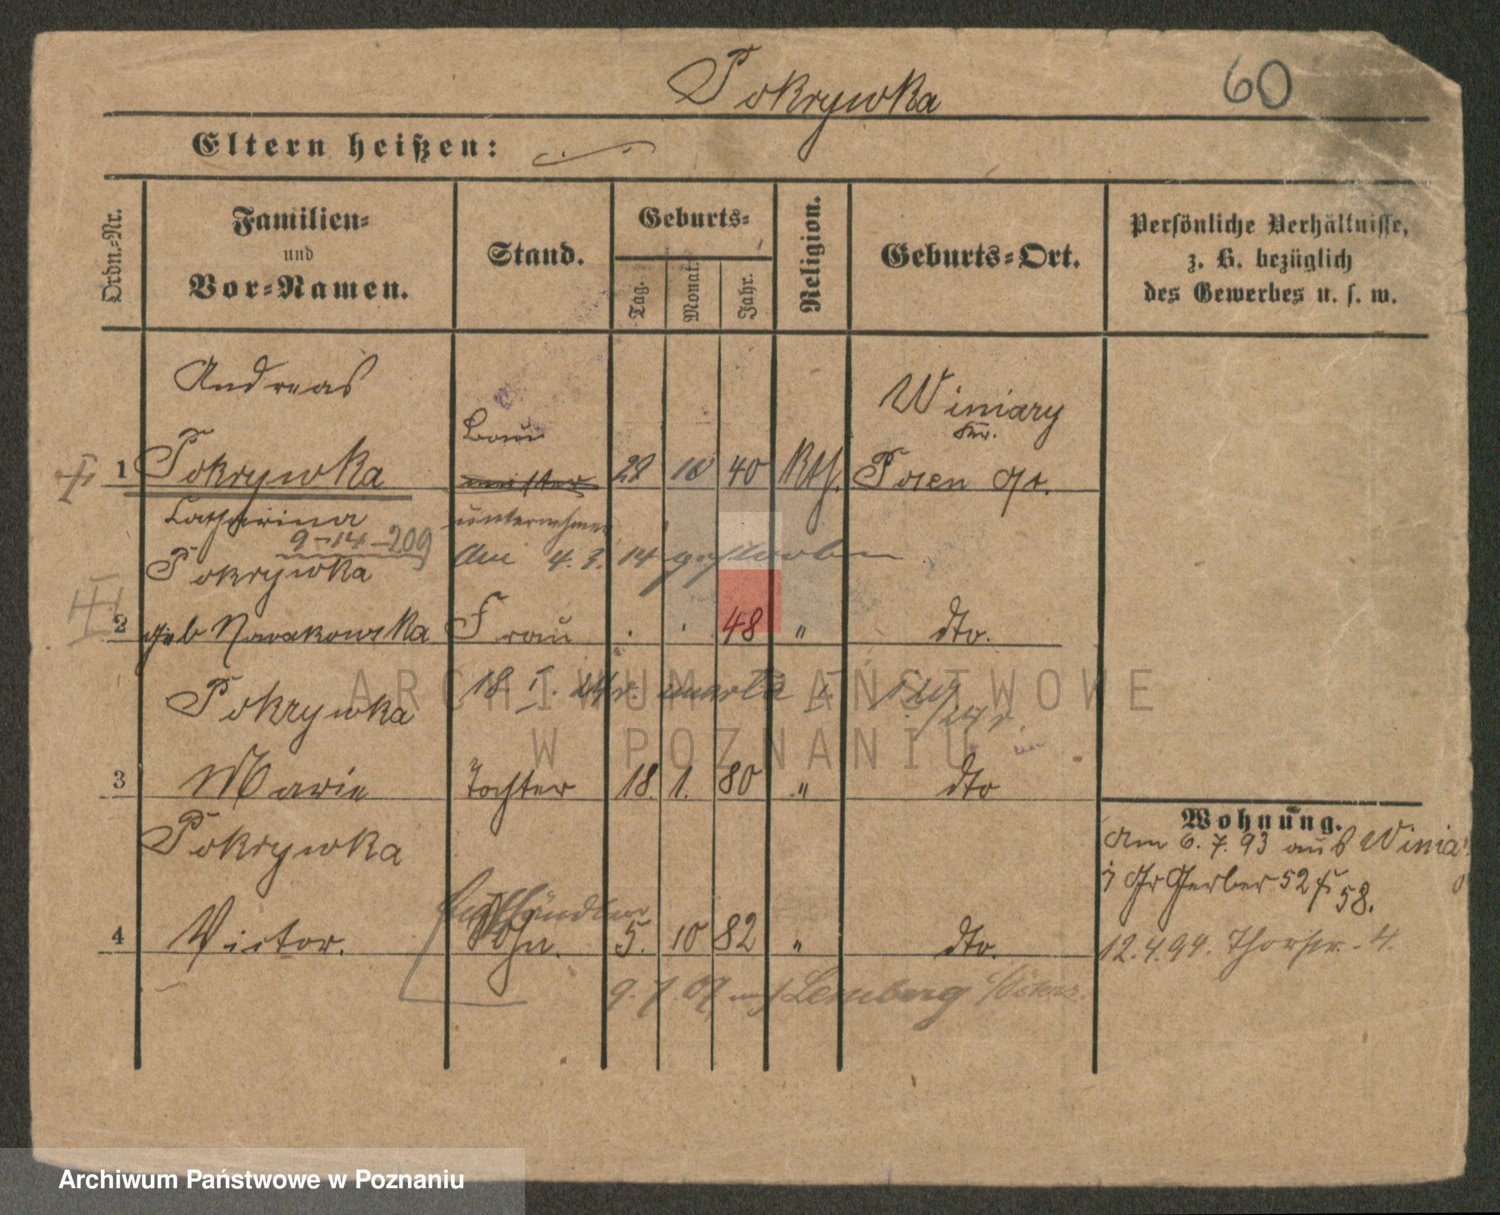 Pokrywka
60
Eltern heißen:
Ordn.-Nr.
Familien-
und
Vor-Namen.
Stand.
Geburts-
Tag.
Monat.
Jahr.
Religion.
Geburts-Ort.
Persönliche Verhältnisse,
z. B. bezüglich
des Gewerbes u. s. w.
Andreas
Winiary
Bau
Kr.
1 Pokrywka meister 28 10 40 Kth. Posen Ost.
Catharina unternehmer
9-14-209
Pokrywka am 4. 3. 14 gestorben
2 geb Nowakowska Frau 48 " dto.
Pokrywka 18 I. umarła
3 Marie Tochter 18. 1. 80 " dto
Pokrywka
4 Victor. Sohn. 5. 10 82 " dto.
9. 7. 07 Lemberg
Wohnung.
Am 6. 7. 93 aus Winia
Gr Gerber 52
58.
12.4.94. Thorstr. 4.
ARCHIWUM PAŃSTWOWE
W POZNANIU
Archiwum Państwowe w Poznaniu